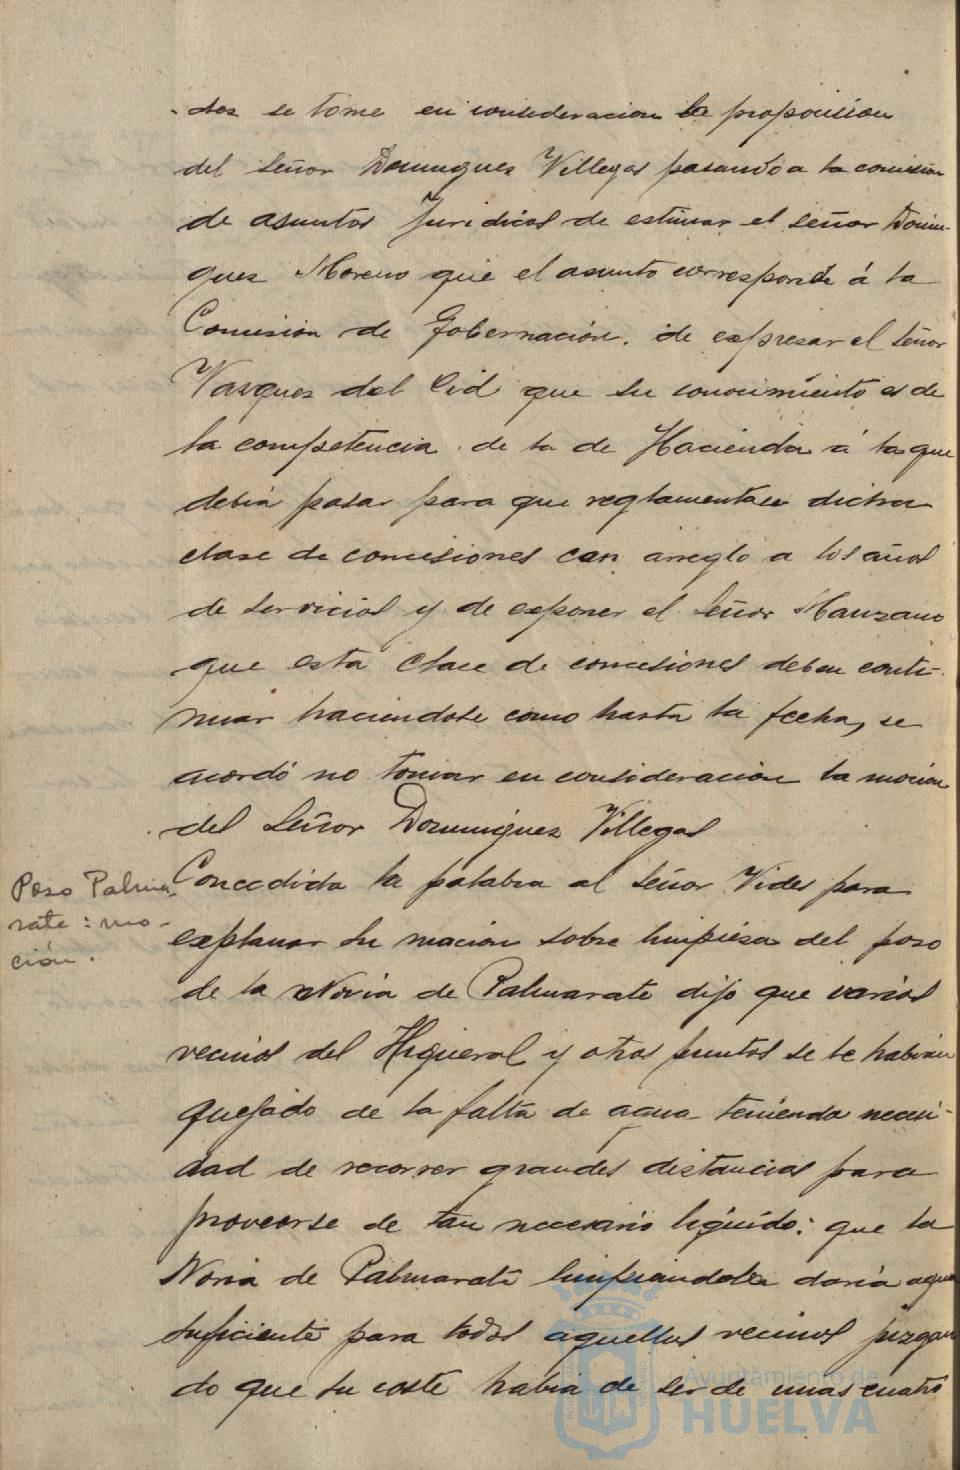 des se tome en consideracion la proposicion
del señor Dominguez Villegas pasando a la comision
de asuntos Juridicos de estimar el señor Domin-
guez Moreno que el asunto corresponde á la
Comision de Gobernación. de expresar el señor
Vazquez del Cid que su conocimiento es de
la competencia de la de Hacienda á la que
debia pasar para que reglamentase dicha
clase de concesiones con arreglo a los años
de servicios y de exponer el señor Manzano
que esta clase de concesiones deben conti-
nuar haciendose como hasta la fecha, se
acordó no tomar en consideracion la mocion
del Señor Dominguez Villegas
Poso Palma-
rate: mo-
ción.
Concedida la palabra al señor Vides para
explanar su mocion sobre limpiesa del poso
de la Noria de Palmarate dijo que varios
vecinos del Higueral y otros puntos se le habian
quejado de la falta de agua teniendo necesi-
dad de recorrer grandes distancias para
proveerse de tan necesario liquido: que la
Noria de Palmarate limpiandola daria agua
suficiente para todos aquellos vecinos juzgan
do que su coste habia de ser de unas cuatro
Ayuntamiento de
HUELVA